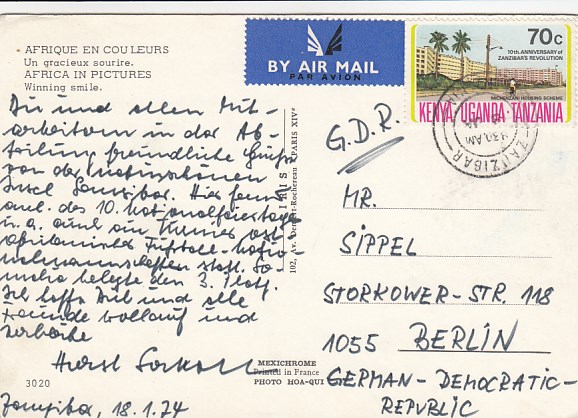 AFRIQUE EN COULEURS
Un gracieux sourire.
AFRICA IN PICTURES
Winning smile.
BY AIR MAIL
PAR AVION
70c
10th ANNIVERSARY of
ZANZIBAR'S REVOLUTION
MICHENZANI HOUSING SCHEME
KENYA UGANDA TANZANIA
ZANZIBAR
930AM
Dir und allen Mit-
arbeitern in der Ab-
teilung freundliche Grüße
von der
Insel Sansibar. Hier fand
anl. des 10. Nationalfeiertages
u. a. auch ein kleines ost-
afrikanisches Fußball-
statt. So-
malia belegte den 3. Platz.
Ich hoffe Dich und alle
Freunde wohlauf und
verbleibe
Horst
Zanzibar, 18.1.74
3020
IRIS
102, av. Denfert-Rochereau PARIS XIVe
MEXICHROME
Printed in France
PHOTO HOA-QUI
G.D.R.
MR.
SIPPEL
STORKOWER-STR. 118
1055 BERLIN
GERMAN-DEMOCRATIC-
REPUBLIC